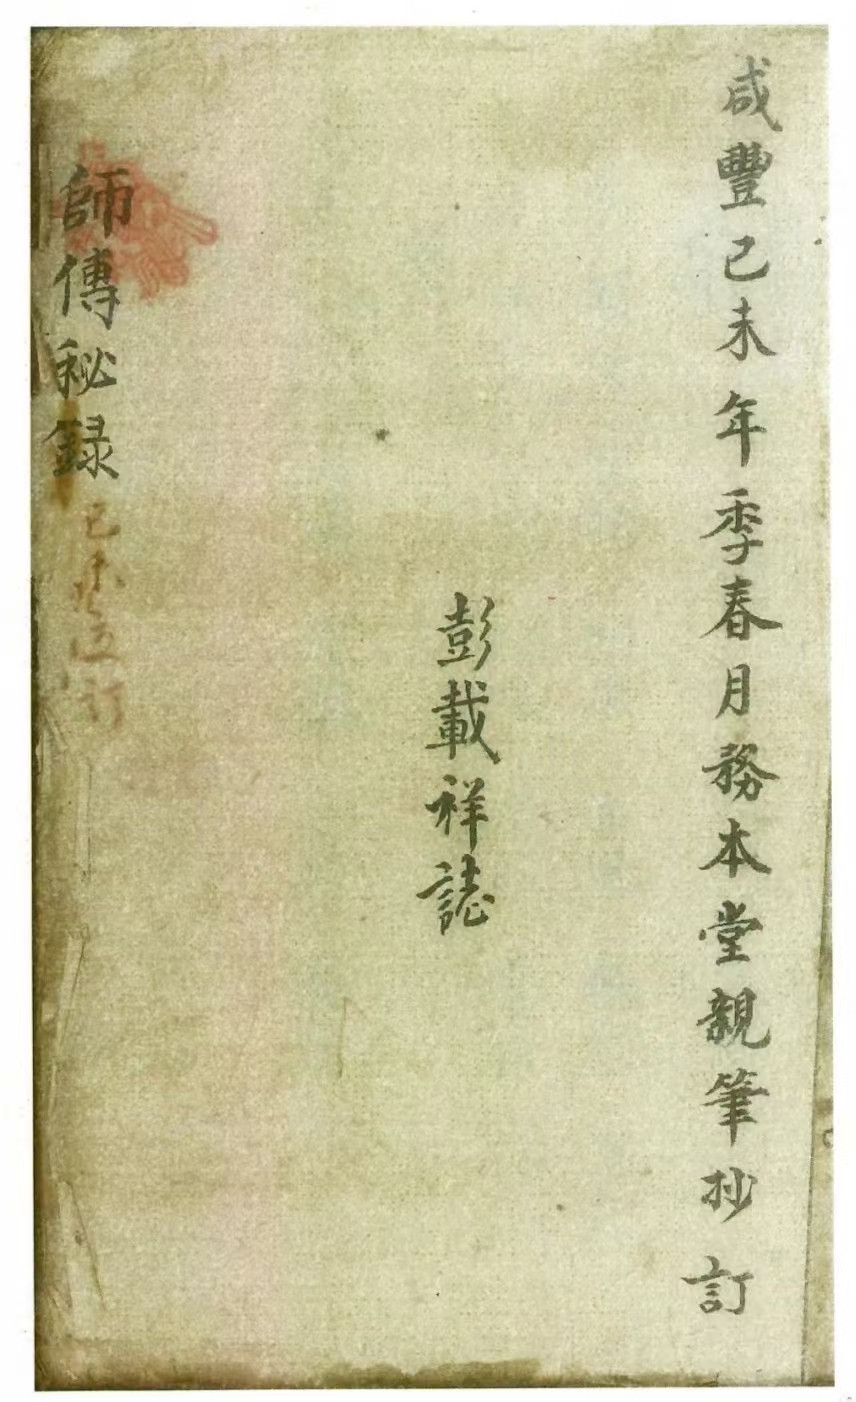 咸豐己未年季春月務本堂親筆抄訂
彭載祥誌
師傳秘錄
己未 訂